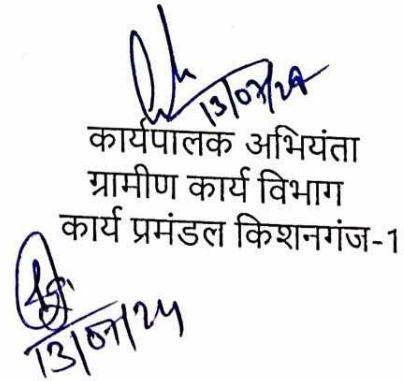 13/07/24
कार्यपालक अभियंता
ग्रामीण कार्य विभाग
कार्य प्रमंडल किशनगंज-1
13/07/24